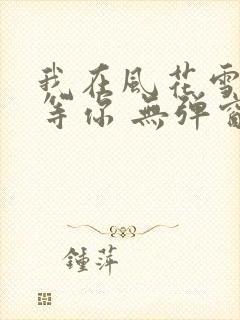 我在風花雪
等你 無彈窗
鍾萍